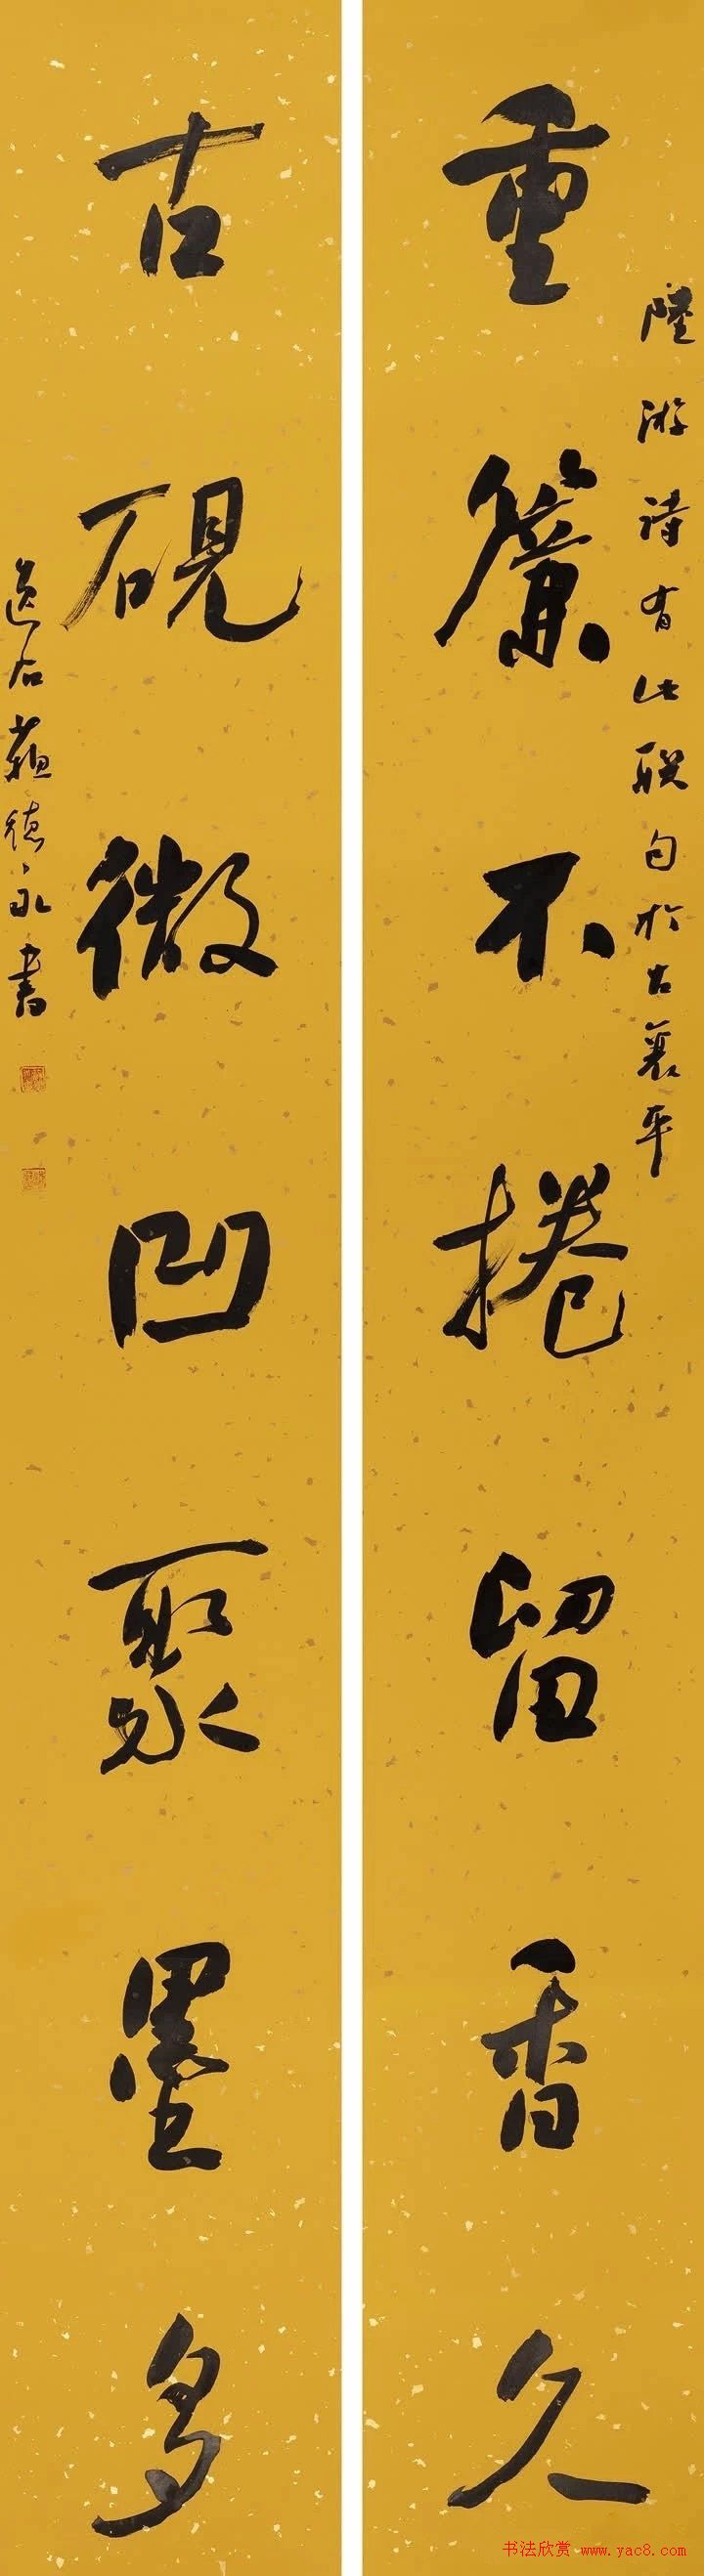 重簾不捲留香久
陸游詩有此联句於古襄平
古硯微凹聚墨多
逸石蘇德永書
书法欣赏 www.yac8.com